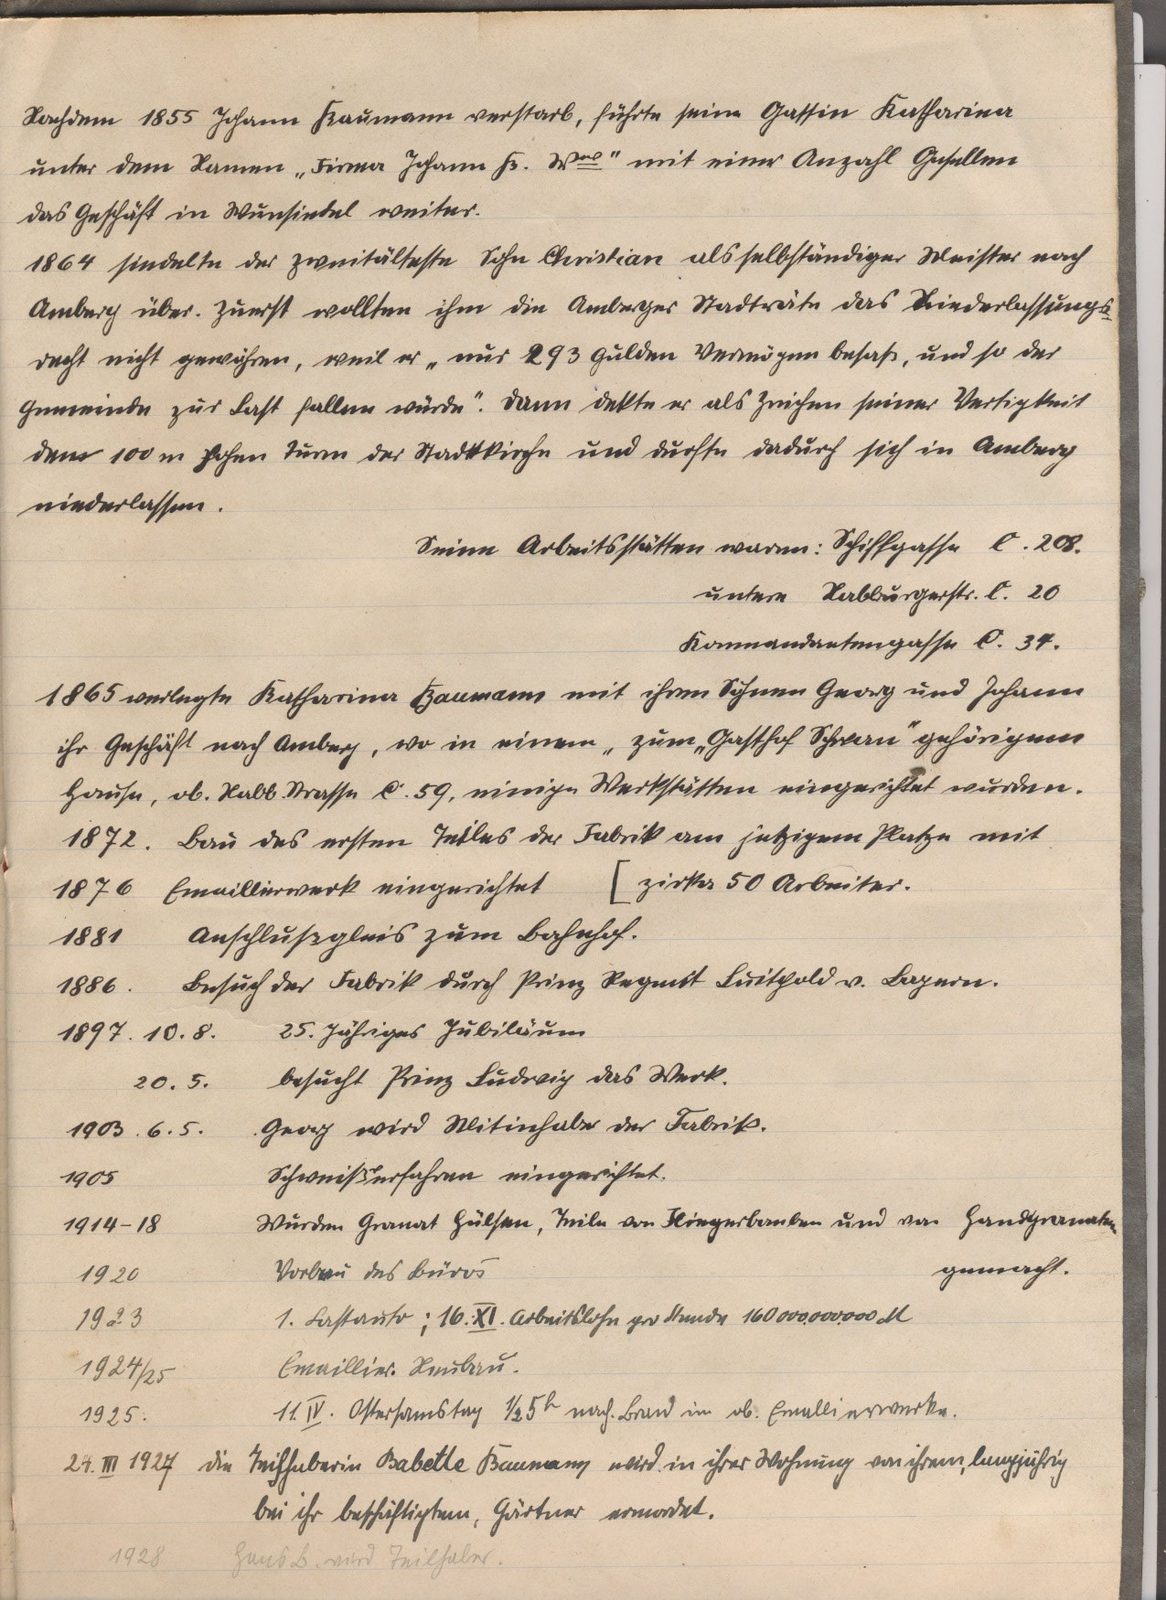 Nachdem 1855 Johann Baumann verstarb, führte seine Gattin Katharina
unter dem Namen „Firma Johann B. Wwe" mit einer Anzahl Gesellen
das Geschäft in Wunsiedel weiter.
1864 siedelte der zweitälteste Sohn Christian als selbständiger Meister nach
Amberg über. Zuerst wollten ihm die Amberger Stadträte das Niederlassungs-
recht nicht gewähren, weil er „nur 293 Gulden Vermögen besaß, und so der
Gemeinde zur Last fallen würde". Dann dekte er als Zeichen seiner Vertigkeit
den 100 m hohen Turm der Stadtkirche und durfte dadurch sich in Amberg
niederlassen.
Seine Arbeitsstätten waren: Schiffgasse C. 208.
untere Nabburgerstr. C. 20
Kommandantengasse C. 34.
1865 verlegte Katharina Baumann mit ihren Söhnen Georg und Johann
ihr Geschäft nach Amberg, wo in einem „zum „Gasthof Schwan" gehörigem
Hause, ob. Nabb. Strasse C. 59, einige Werkstätten eingerichtet wurden.
1872. Bau des ersten Teiles der Fabrik am jetzigem Platze mit
1876 Emaillierwerk eingerichtet [ zirka 50 Arbeiter.
1881 Anschlußgleis zum Bahnhof.
1886. Besuch der Fabrik durch Prinz Regent Luitpold v. Bayern.
1897. 10. 8. 25. Jähriges Jubiläum
20. 5. besucht Prinz Ludwig das Werk.
1903. 6. 5. Georg wird Mitinhaber der Fabrik.
1905 Schweißverfahren eingerichtet.
1914-18 Wurden Granat Hülsen, Teile von Fliegerbomben und von Handgranaten
gemacht.
1920 Vorbau des Büros
1923 1. Lastauto; 16. XI. Arbeitslohn pro Stunde 160 000,000000 M
1924/25 Emaillier. Neubau.
1925. 11. IV. Ostersamstag 1/2 5 h nach. Brand im ob. Emallierwerke.
24. III 1927 die Teilhaberin Babette Baumann wird in ihrer Wohnung von ihrem, langjährig
bei ihr beschäftigtem, Gärtner ermordet.
1928 Hans B. wird Teilhaber.